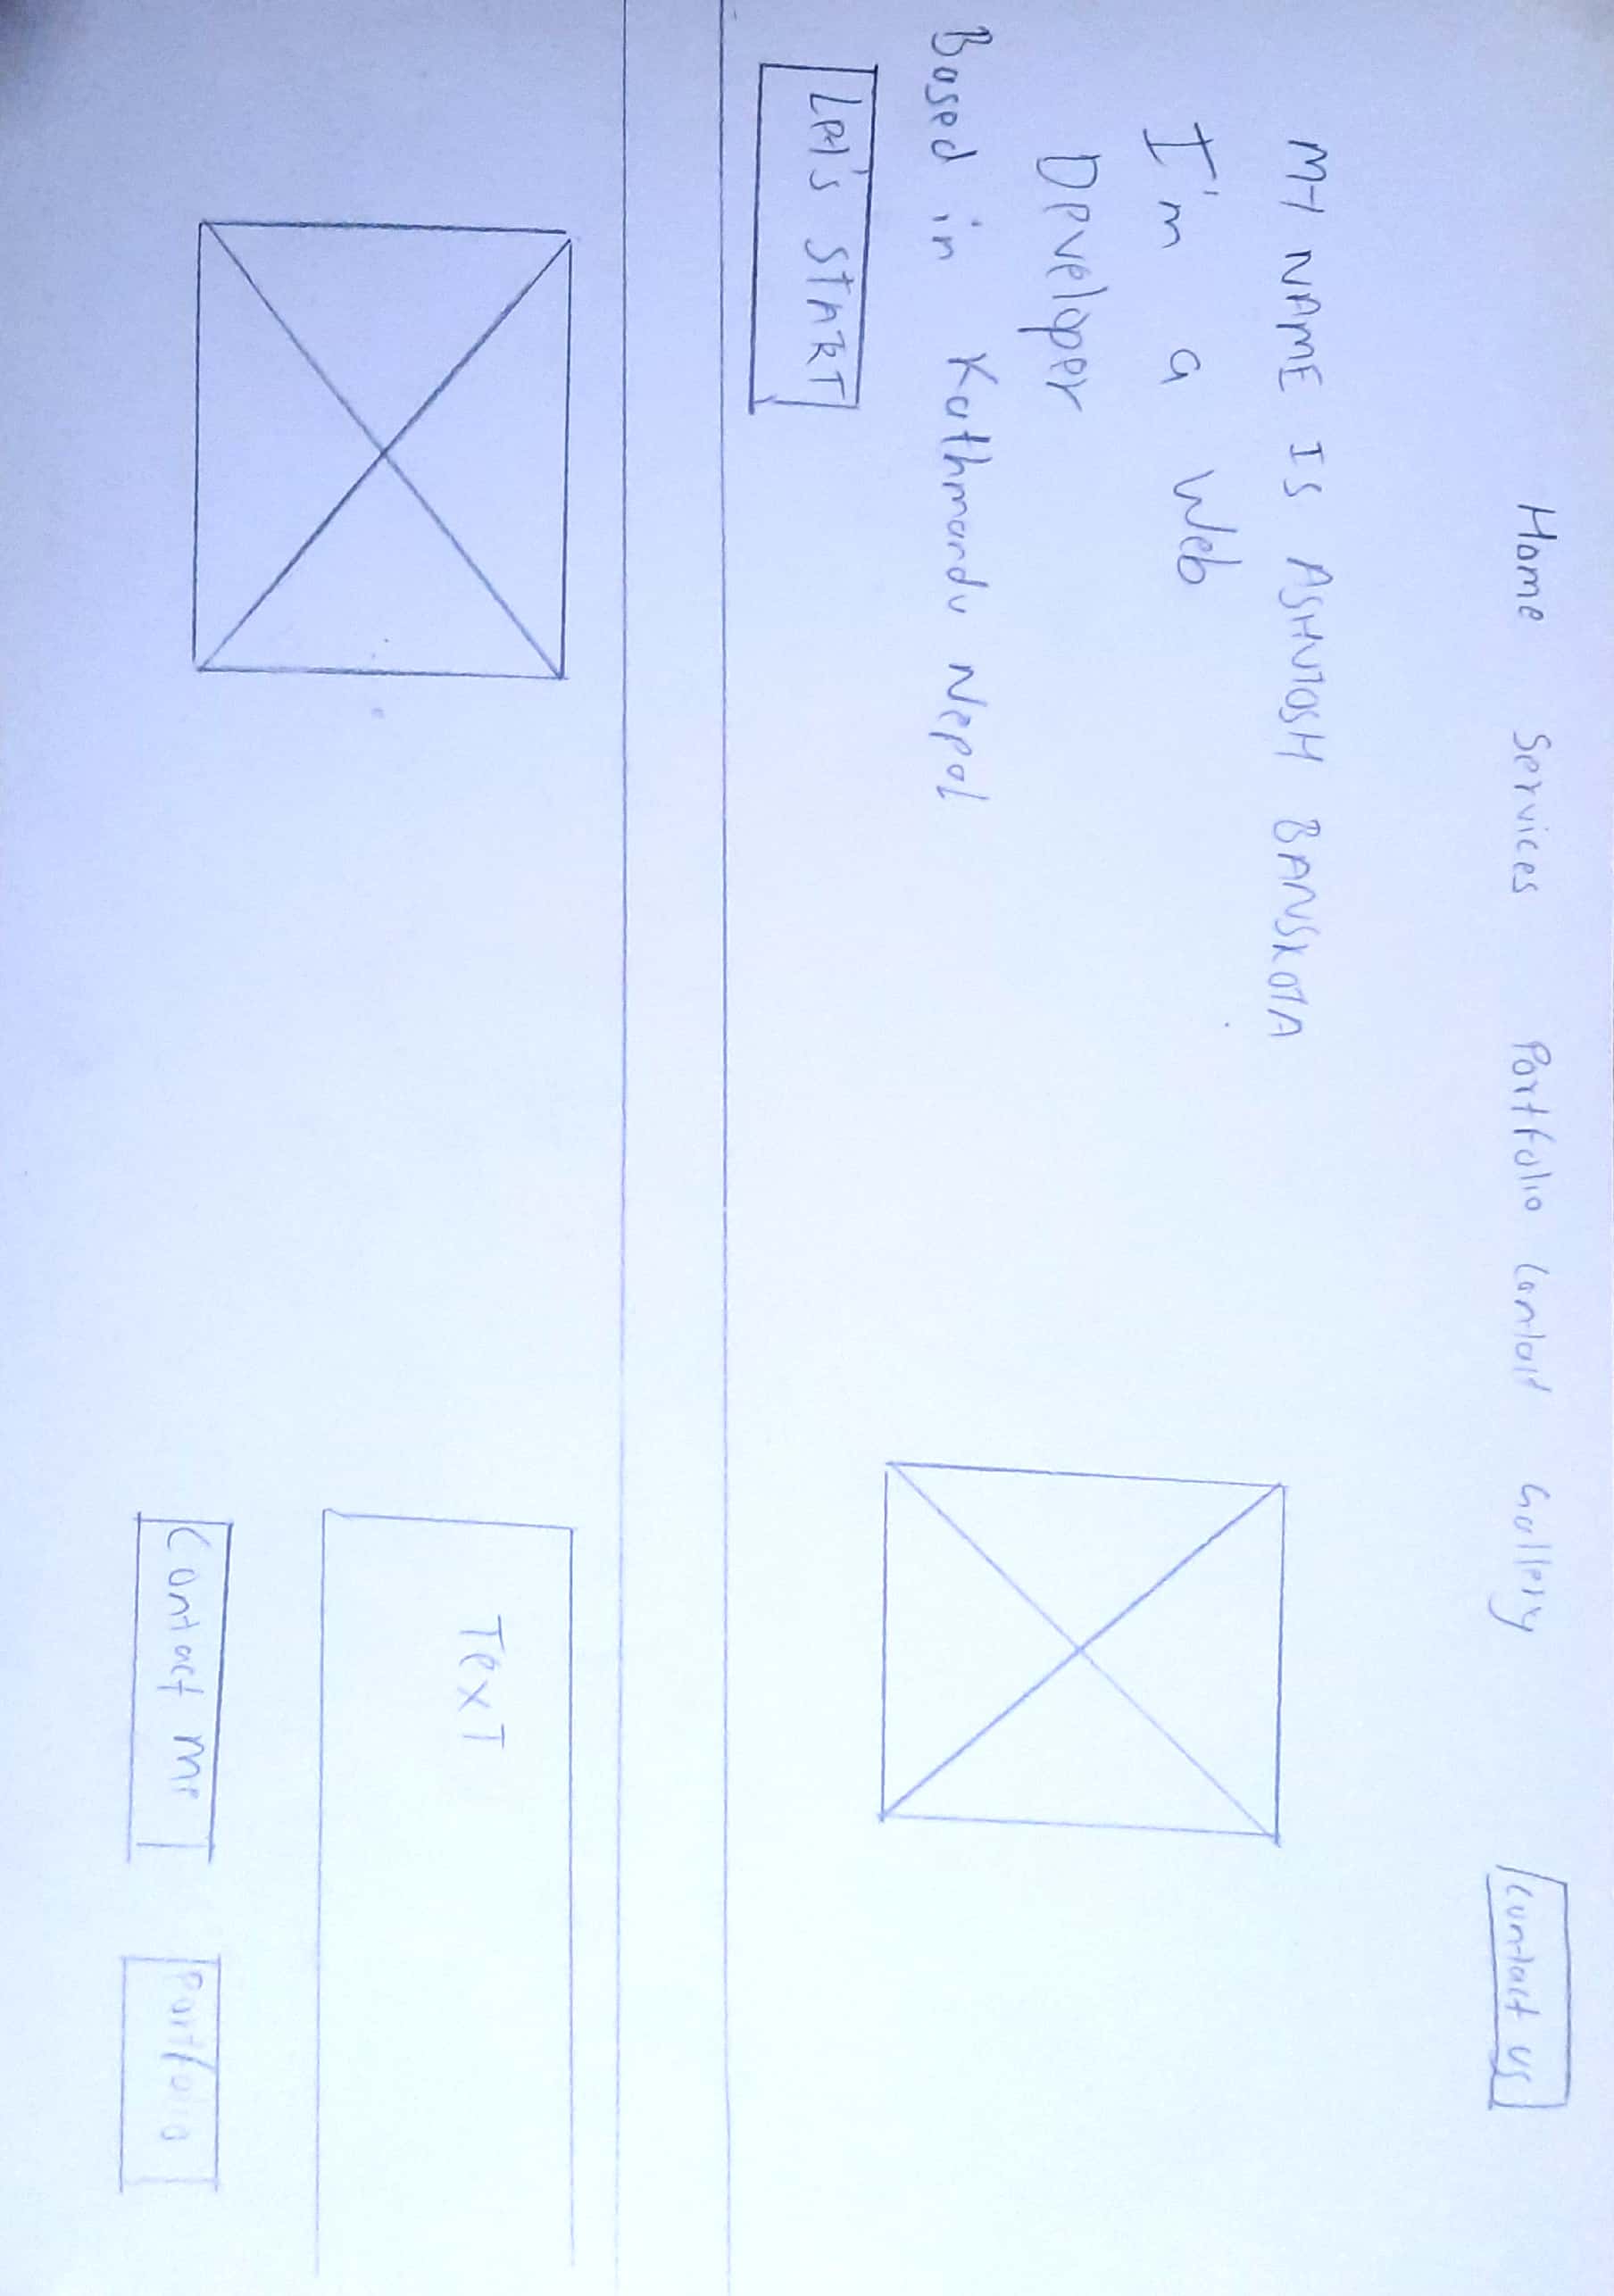 Home Services Portfolio Contact Gallery
Contact us
MY NAME IS ASHUTOSH BANSKOTA
I'm a Web
Developer
Based in Kathmandu Nepal
Let's START
TexT
Contact me
Portfolio